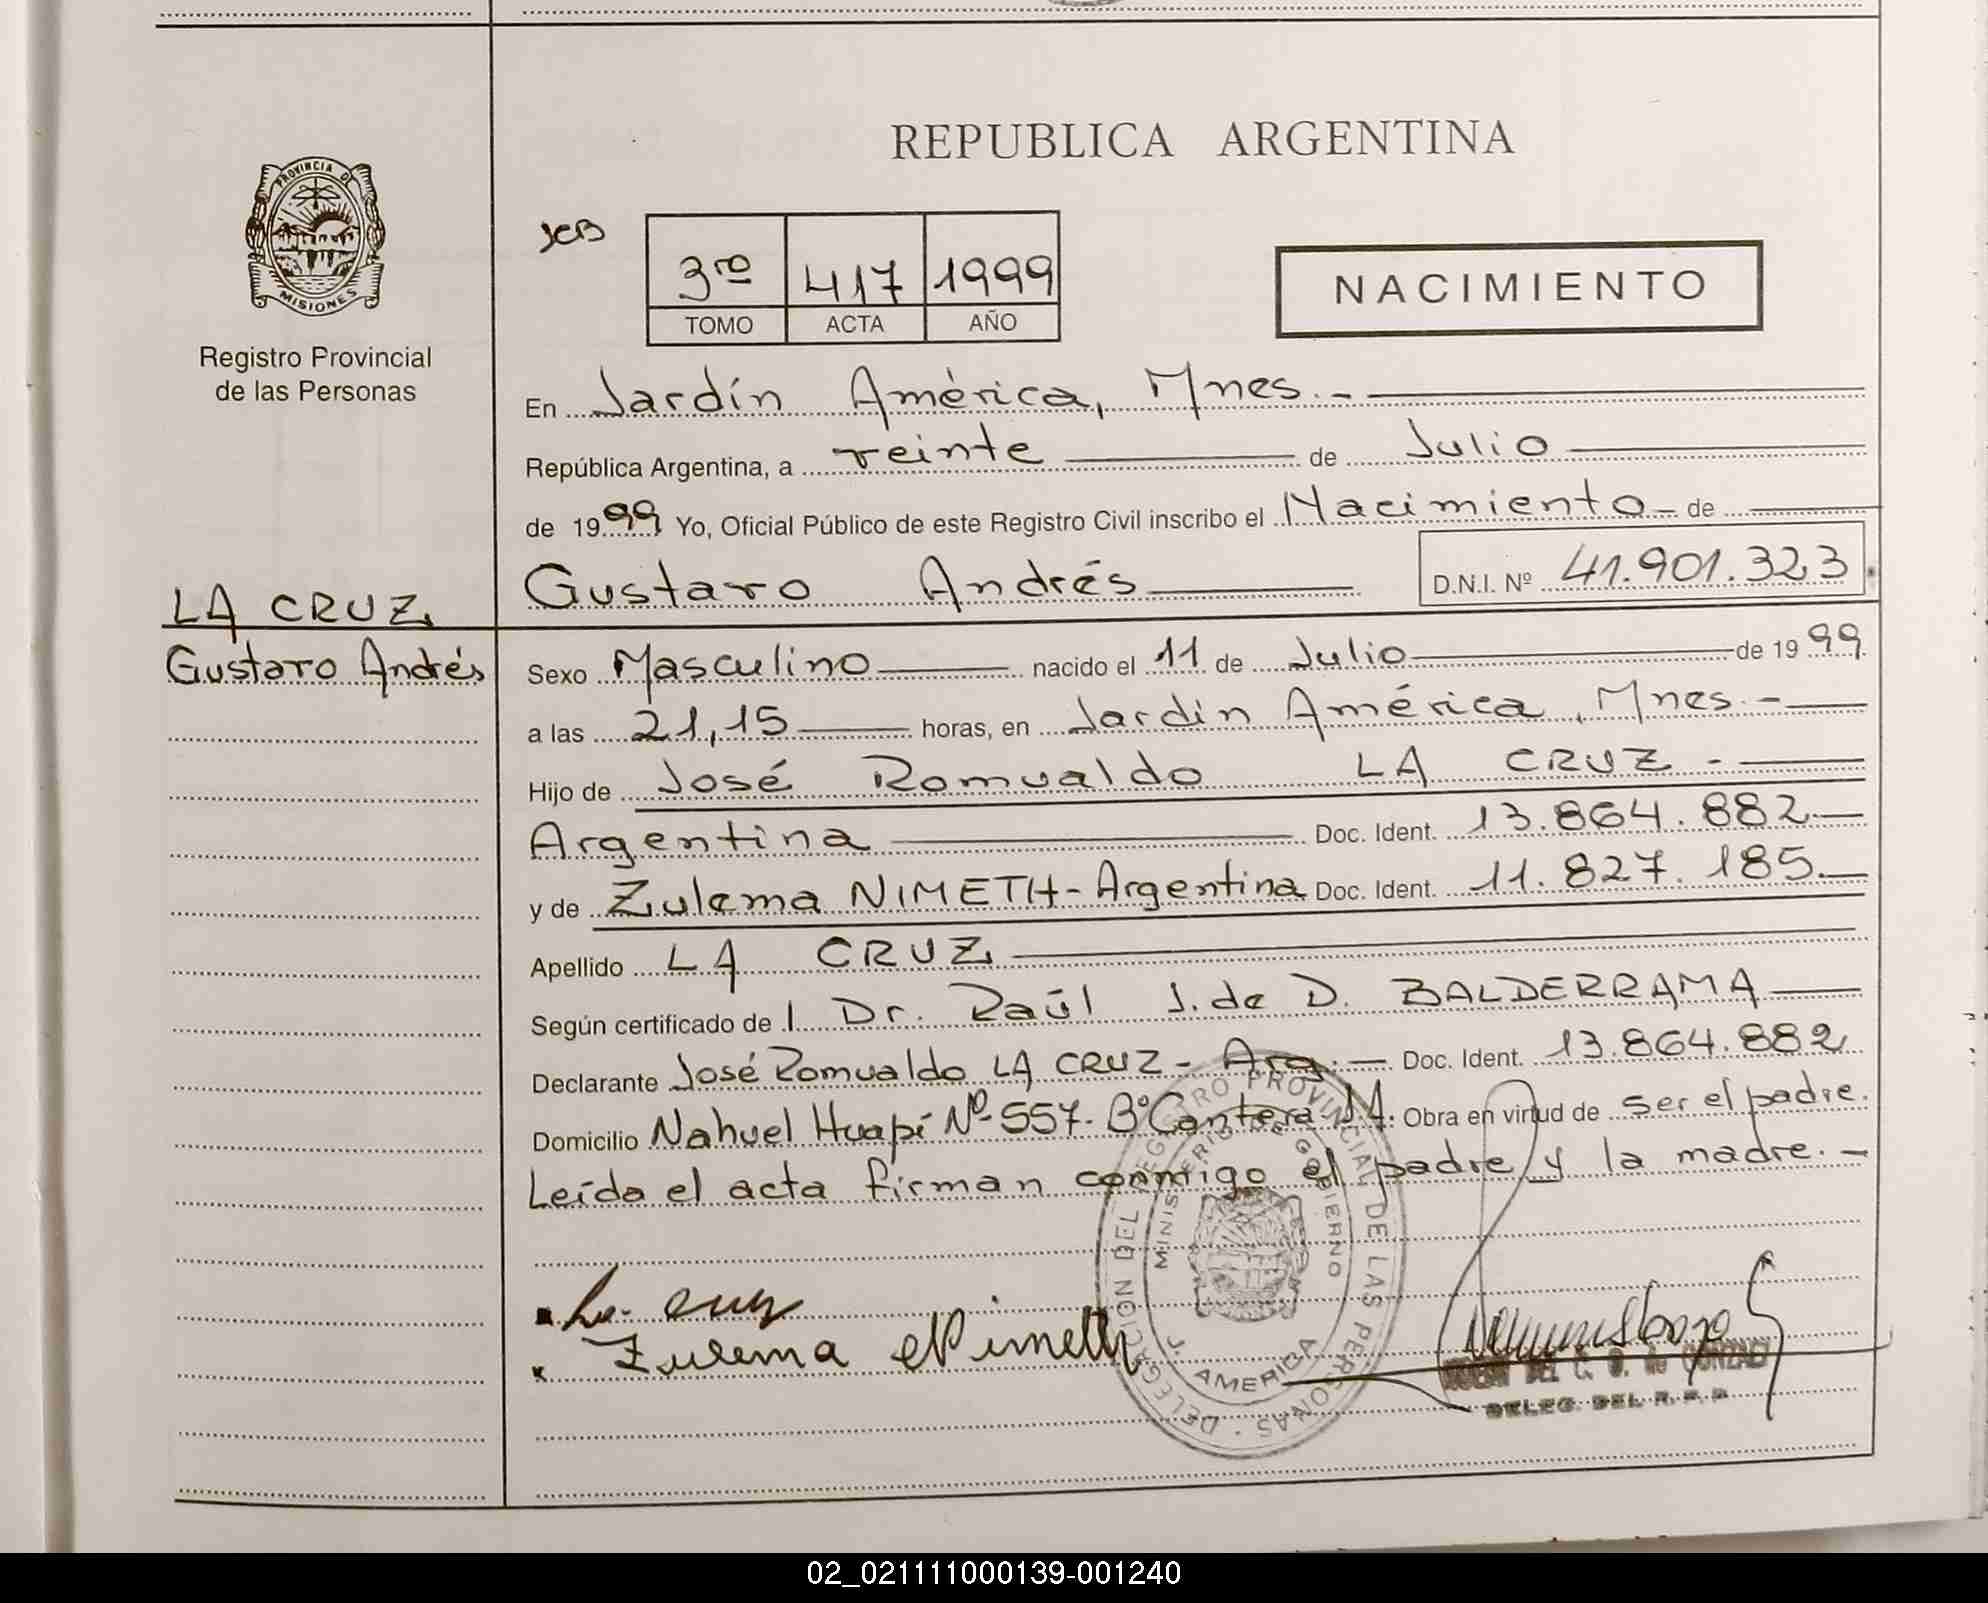 REPUBLICA ARGENTINA
PROVINCIA DE MISIONES
Registro Provincial
de las Personas
3ro 417 1999
TOMO ACTA AÑO
NACIMIENTO
En Jardín América, Mnes.-
República Argentina, a veinte de Julio
de 1999 Yo, Oficial Público de este Registro Civil inscribo el Nacimiento - de
Gustavo Andrés D.N.I. Nº 41.901.323
LA CRUZ
Gustavo Andrés
Sexo Masculino nacido el 11 de Julio de 1999
a las 21,15 horas, en Jardín América, Mnes.-
Hijo de José Romualdo LA CRUZ.-
Argentina Doc. Ident. 13.864.882-
y de Zulema NIMETH-Argentina Doc. Ident. 11.827.185.-
Apellido LA CRUZ
Según certificado de l Dr. Raúl J. de D. BALDERRAMA
Declarante José Romualdo LA CRUZ - Arg.- Doc. Ident. 13.864.882
Domicilio Nahuel Huapí Nº 557- Bº Cantera J.A. Obra en virtud de ser el padre.
Leída el acta firman conmigo el padre y la madre.-
La cruz
Zulema Nimeth
DELEGACION DEL REGISTRO PROVINCIAL DE LAS PERSONAS
MINISTERIO DE GOBIERNO
J. AMERICA
DEL C. D. de GONZALEZ
DELEG. DEL R.P.P.
02_021111000139-001240